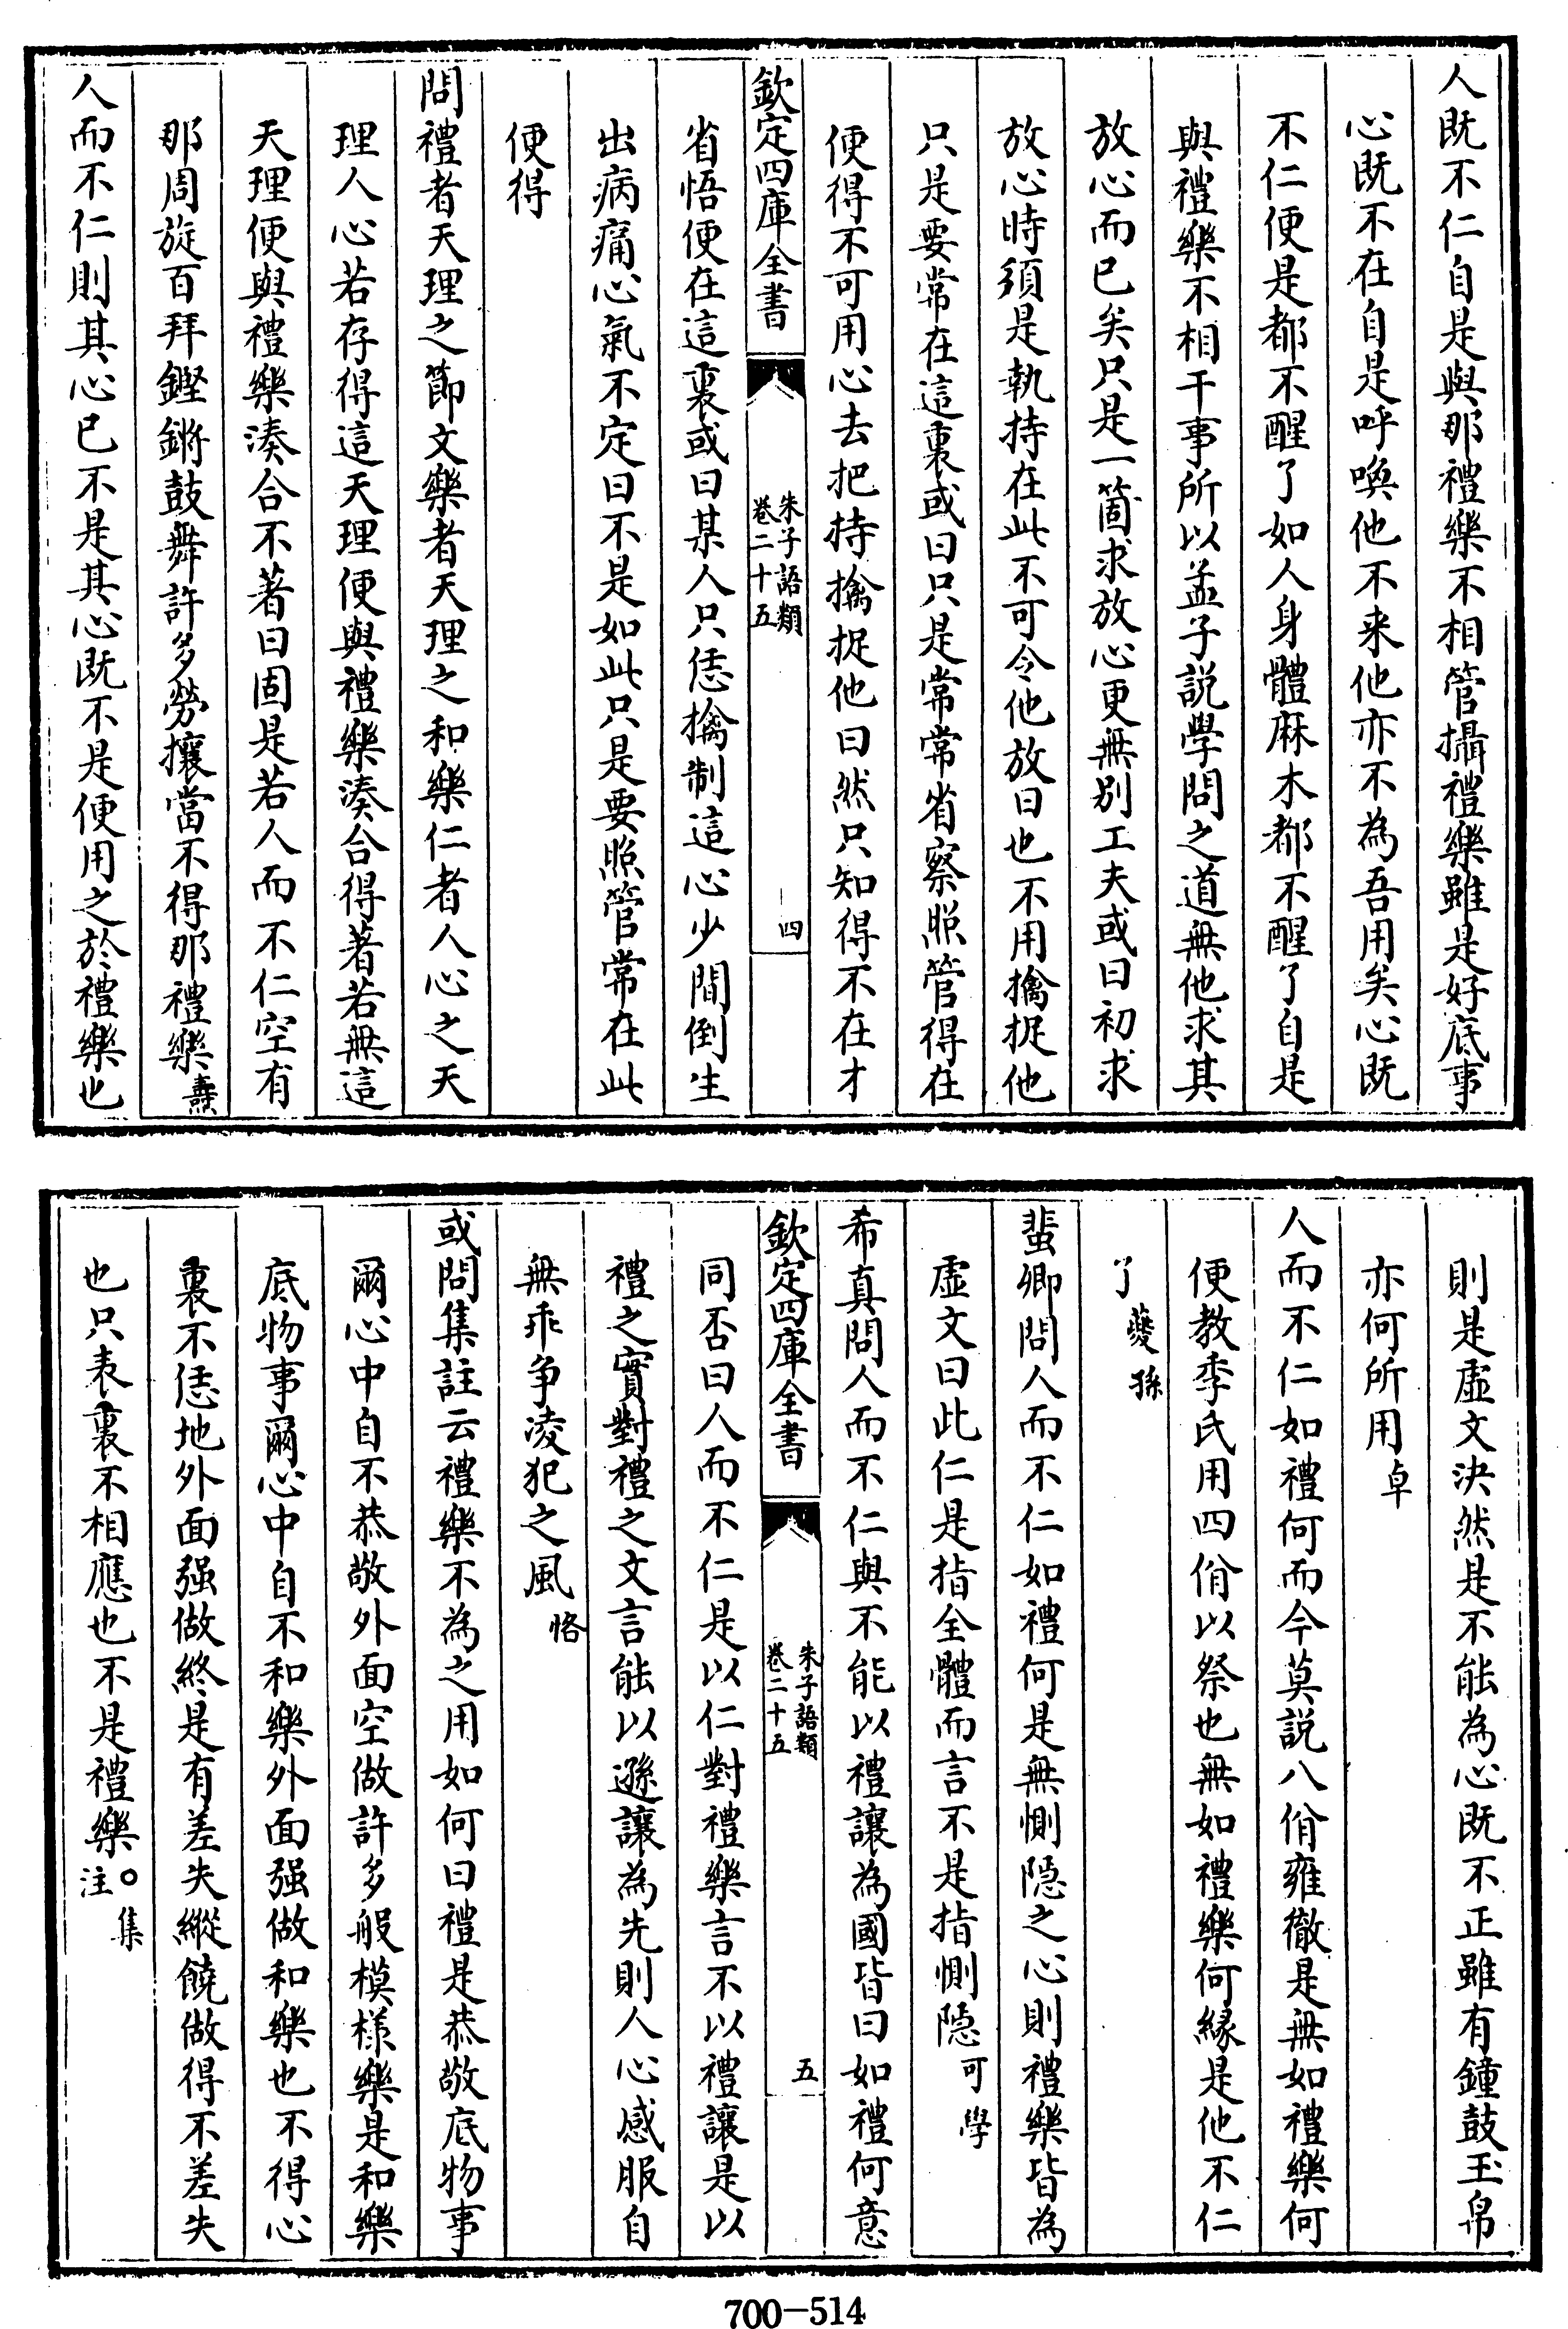 人既不仁自是與那禮樂不相管攝禮樂雖是好底事
心既不在自是呼喚他不来他亦不為吾用矣心既
不仁便是都不醒了如人身體麻木都不醒了自是
與禮樂不相干事所以孟子説學問之道無他求其
放心而已矣只是一箇求放心更無别工夫或曰初求
放心時須是執持在此不可令他放曰也不用擒捉他
只是要常在這裏或曰只是常常省察照管得在
便得不可用心去把持擒捉他曰然只知得不在才
欽定四庫全書
朱子語類
卷二十五
四
省悟便在這裏或曰某人只恁擒制這心少間倒生
出病痛心氣不定曰不是如此只是要照管常在此
便得
問禮者天理之節文樂者天理之和樂仁者人心之天
理人心若存得這天理便與禮樂湊合得著若無這
天理便與禮樂湊合不著曰固是若人而不仁空有
那周旋百拜鏗鏘鼓舞許多勞攘當不得那禮樂燾
人而不仁則其心已不是其心既不是便用之於禮樂也
則是虛文決然是不能為心既不正雖有鐘鼓玉帛
亦何所用卓
人而不仁如禮何而今莫説八佾雍徹是無如禮樂何
便教季氏用四佾以祭也無如禮樂何緣是他不仁
了夔孫
蜚卿問人而不仁如禮何是無惻隠之心則禮樂皆為
虛文曰此仁是指全體而言不是指惻隠可學
希真問人而不仁與不能以禮讓為國皆曰如禮何意
欽定四庫全書
朱子語類
卷二十五
五
同否曰人而不仁是以仁對禮樂言不以禮讓是以
禮之實對禮之文言能以遜讓為先則人心感服自
無乖争凌犯之風恪
或問集註云禮樂不為之用如何曰禮是恭敬底物事
爾心中自不恭敬外面空做許多般模様樂是和樂
底物事爾心中自不和樂外面强做和樂也不得心
裏不恁地外面强做終是有差失縱饒做得不差失
也只表裏不相應也不是禮樂○集注
700-514